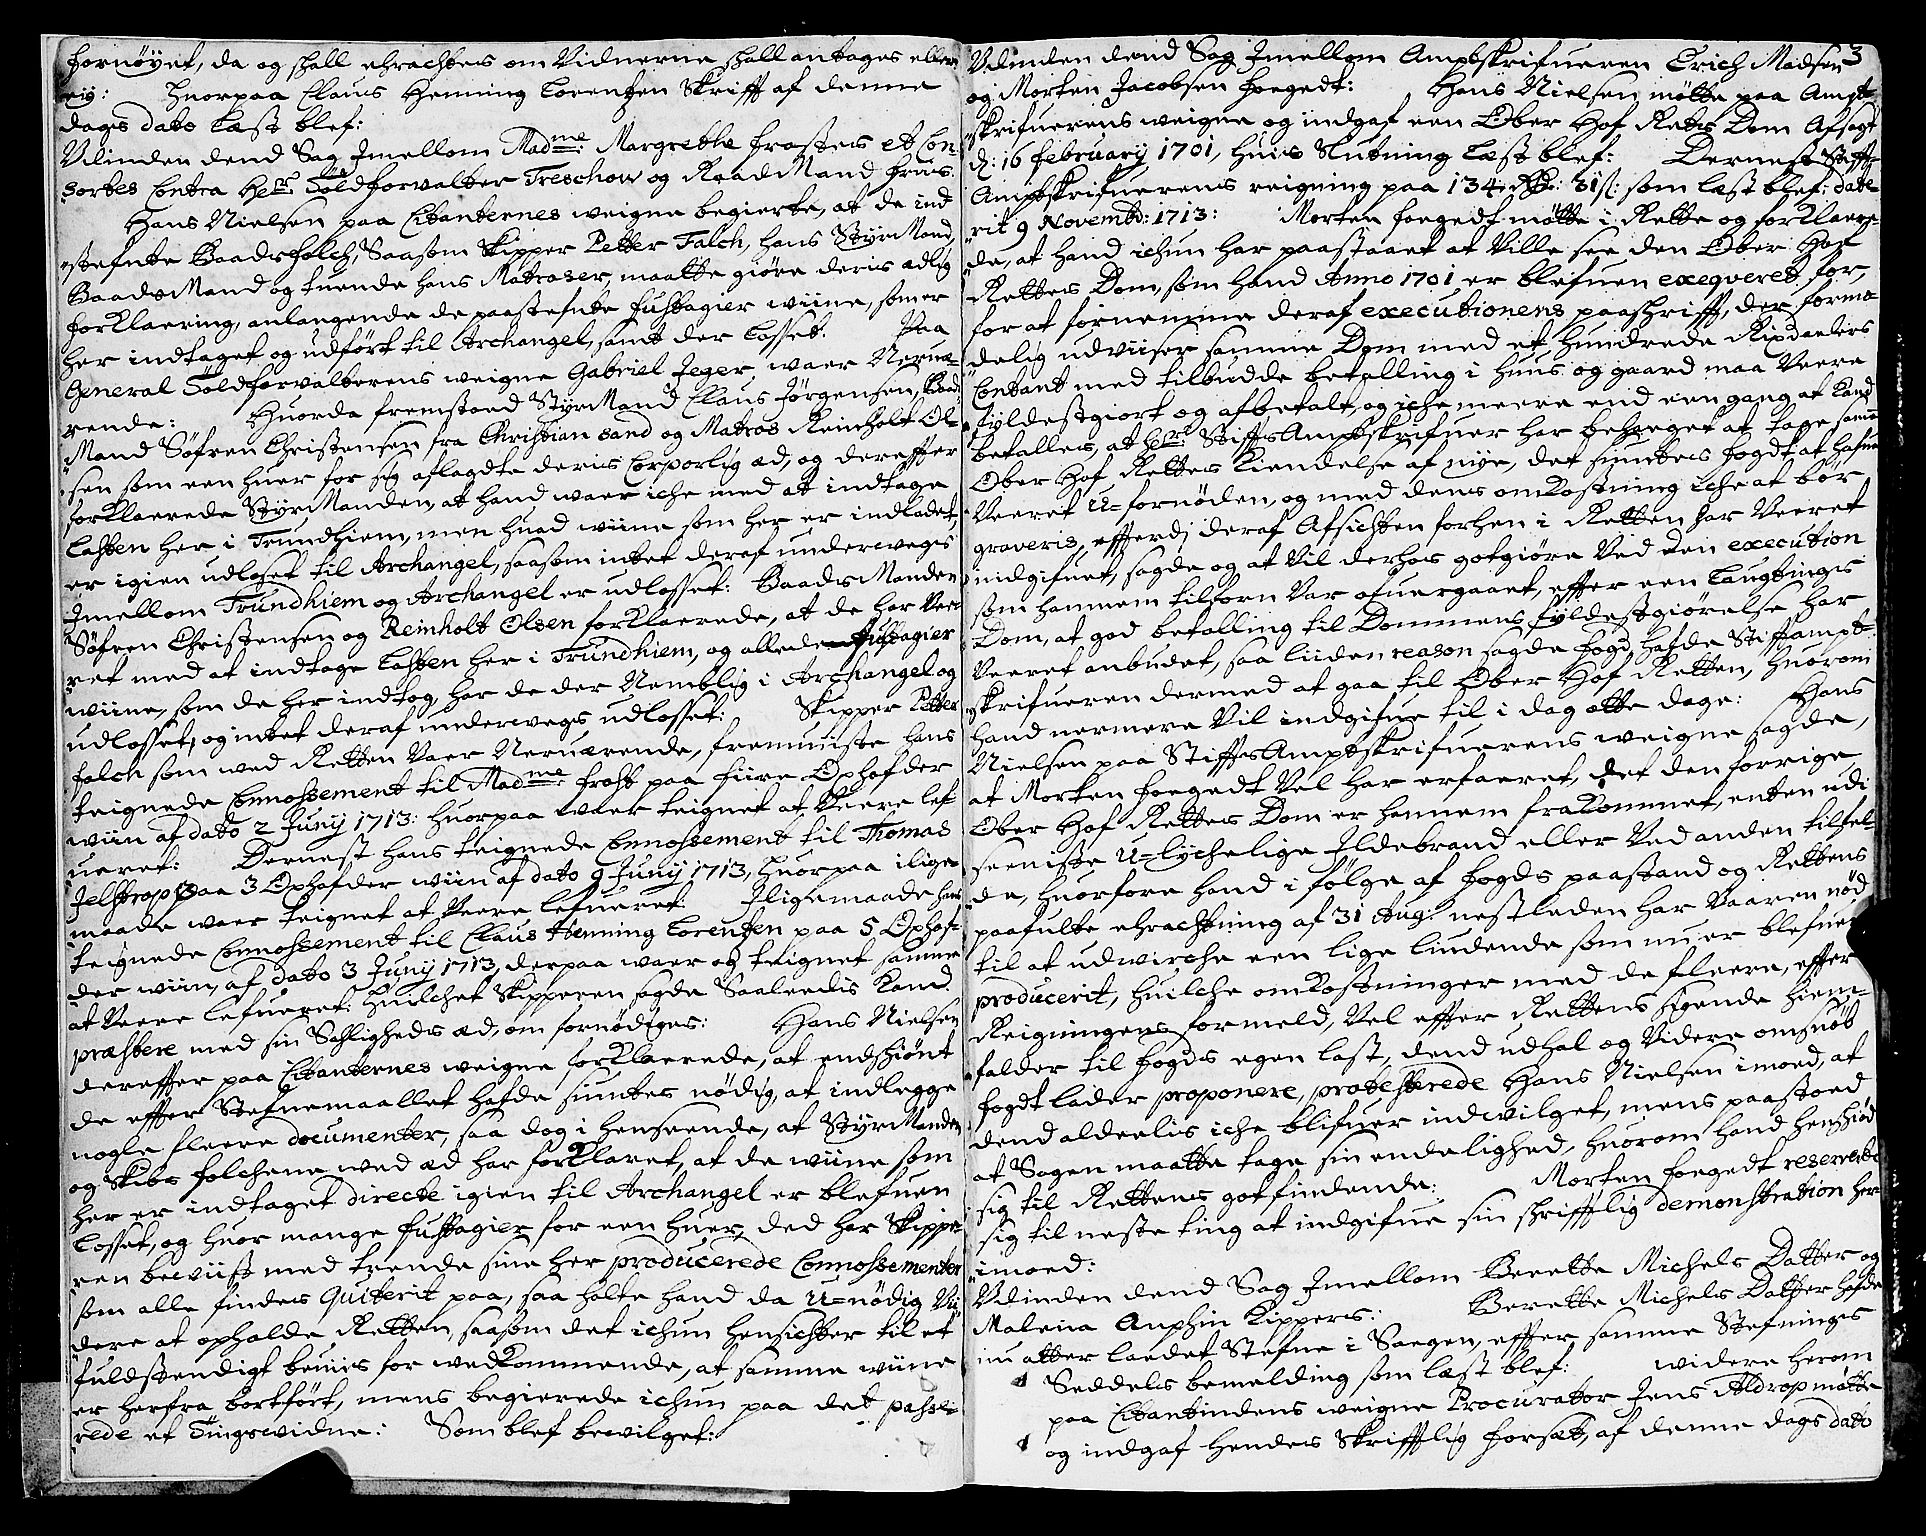 fornöyet, da og skall ehrachtes om Vidnerne skall antages eller
eij: Huorpaa Claus Henning Lorentzen Skrifft af denne
dags dato læst blef:
Vdinden dend Sag Jmellom Madme: Margrethe Frostes et Con-
sortes Contra Hers: Töldforvalter Treschow og Raad Mand Friis
Hans Nielsen paa Citanternes weigne begierte, at de ind
stefnte Baadsfolch, Saasom Skipper Petter Falch, hans StyrMand,
BaadsMand og tuende hans Matroser, maatte giöre deris ædlig
forklaering, anlangende de paastefnte fustagier wiine, som er
her indtaget og udfört til Archangel, samt der losset. Paa
General Töldforvalterens weigne Gabriel Jeger waer Neruæ-
rende: Huorda fremstoed StyrMand Claus Jörgensen, Baad
Mand Söfren Christensen fra Christian sand og Matros Reinholt Ol-
sen som een huer for sig aflagdte deris Corporlig æd, og dereffter
forklaerede StyrManden, at hand waer iche med at indtage
Lasten her i Trundhiem, men huad wiine som her er indladet,
er igien udloset til Archangel, saasom intet deraf underweges
Jmellom Trundhiem og Archangel er udlosset: BaadsManden
Söfren Christensen og Reinholt Olsen forklaerede, at de har Vee-
ret med at indtage Lasten her i Trundhiem, og allede fustagier
wiine, som de her indtog, har de der Nemblig i Archangel og
udlosset, og intet deraf underweges udlosset: Skipper Petter
falch som wed Retten Vaer Neruærende, fremuiste hans
teignede Connossement til Madme: Frost paa fiire Oxhofder
wiin af dato 2 Junij 1713: huorpaa waer teignet at Veere lef
ueret: Dernest hans teignede Connossement til Thomas
Jelstrop paa 3 Oxhofder wiin af dato 9 Junij 1713, huorpaa ilige
maade waer teignet at Veere lefueret: Jligemaade hans
teignede Connossement til Claus Henning Lorentzen paa 5 Oxhof-
der wiin, af dato 3 Junij 1713, derpaa waer og teignet samme
at Veere lefueret: Huilchet Skipperen sagde Saaleedis Kand
præstere med sin Sahligheds æd, om fornödiges: Hans Nielsen
dereffter paa Citanternes weigne forklaerede, at endskiönt
de effter Stefnemaallet hafde siuntes nödig, at indlegge
nogle fleere documenter, saa dog i henseende, at StyrManden
og Skibs folchene wed æd har forklaret, at de wiine som
her er indtaget directe igien til Archangel er blefuen
losset, og huor mange fustagier for een huer, ded har Skippe-
ren beviist med trende sine her producerede Connossementer
som alle findes quiterit paa, saa holte hand da u=nödig Vii
dere at opholde Retten, saasom det ichun hensichter til et
fuldstendigt beviis for wedkommende, at samme wiine
er herfra bortfört, mens begierede ichun paa det passe-
rede et Tingswidne: Som blef bewilget:
3
Vdinden dend Sag Jmellom Amptskrifueren Erich Madsen
og Morten Jacobsen Foegedt: Hans Nielsen mötte paa Ampt
skrifuerens weigne og indgaf een Ober Hof Rets Dom Afsagt
d: 16 february 1701, huis Slutning læst blef: Dernest Stiffts
Amptskrifuerens reigning paa 134 Rdr: 31 s: som læst blef: date-
rit 9 Novembr: 1713: Morten foegedt mötte i Rette og forklaere-
de, at hand ichun har paastaaet at Ville see den Ober Hof
Rettes Dom, som hand Anno 1701 er blefuen exeqveret for,
for at fornemme deraf executionens paaskrifft, der forme-
delig udviiser samme Dom med et hundrede Rixdaelers
Contant med tilbudde betalling i huus og gaard maa Veere
fyldestgiort og afbetalt, og iche meere end een gang at Kand
betalles, at Hers: StifftsAmptskrifuer har behaeget at tage samme
Ober Hof Rettes Kiendelse af nye, det siuntes fogdt at hafue
Veeret u=fornöden, og med dens omkostning iche at bör
graveris, effterdj deraf Afsichten forhen i Retten har Veeret
indgifuet, sagde og at Vil derhos gotgiöre Ved den execution
som hannem tilforn Var ofuergaaet, effter een Laugtings
Dom, at god betalling til Dommens fyldestgiörelse har
Veeret anbudet, saa liiden reason sagde fogd, hafde Stifftampt
skrifueren dermed at gaa til Ober Hof Retten, huorom
hand nermere Vil indgifue til i dag otte dage: Hans
Nielsen paa StifftsAmptskrifuerens weigne sagde,
at Morten Foegedt Vel har erfaeret, det den forrige
Ober Hof Rettes Dom er hannem frakommet, enten udi
seeniste u=lychelige Jldebrand eller Ved anden tilfel-
de, huorfore hand i fölge af fogds paastand og Rettens
paafulte ehrachtning af 31 Aug: nestleden har Vaaren nöd
til at udwirche een lige liudende som nu er blefuen
producerit, huilche omkostninger med de fleere, effter
Reigningens formeld, Vel effter Rettens sigende hiem-
falder til fogds egen last, dend udhal og Videre omsuöb
fogdt lader proponere, protesterede Hans Nielsen imoed, at
dend alderlis iche blifuer indwilget, mens paastoed
at Sagen maatte tage sin endelighed, huorom hand henskiöd
sig til Rettens gotfindende: Morten foegedt reserverte
sig til neste ting at indgifue sin skrifftlig demonstration her-
imoed:
Vdinden dend Sag Jmellom Berette Michels Datter og
Malena Anphin Kippers: Berette Michels Datter hafde
nu atter laedet Stefne i Saegen, effter samme Stefninges
Seddels bemelding som læst blef: widere herom
paa Citantindens weigne Procurator Jens Aldrop mötte
og indgaf hendes Skrifftlig forsæt, af denne dags dato